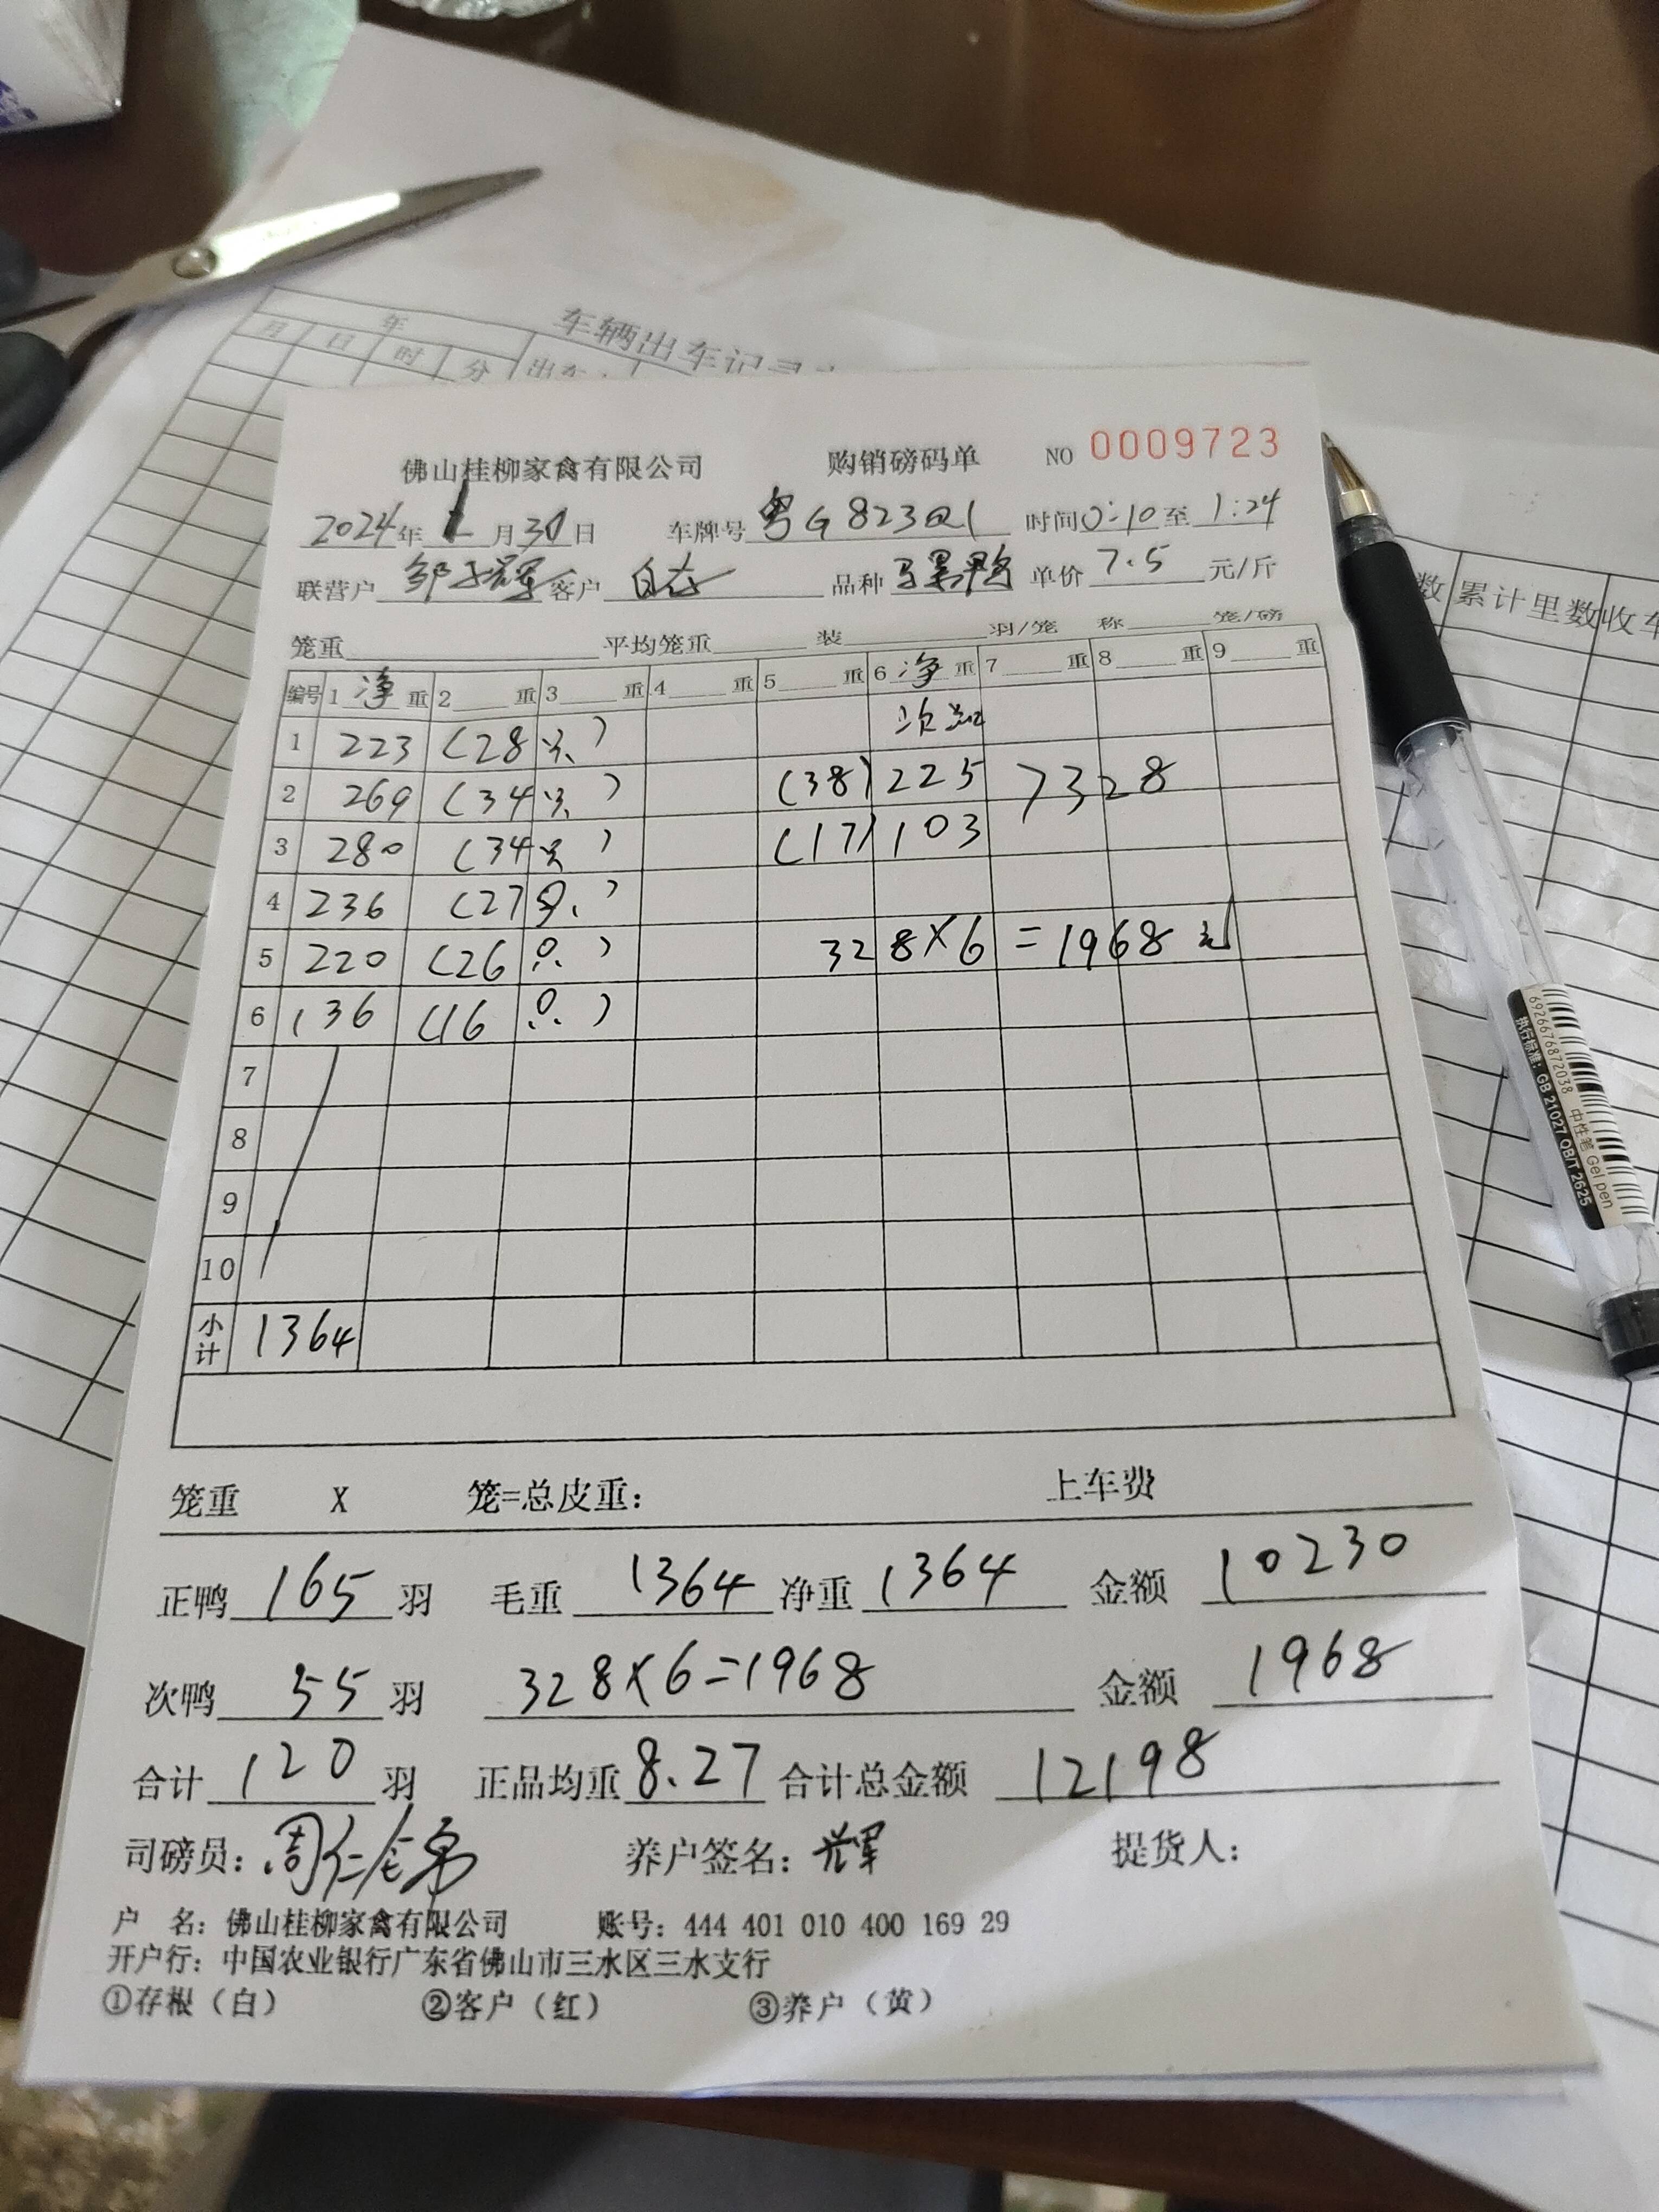 车辆出车记录
年
月 日 时 分 出车
数 累计里数 收车
佛山桂柳家禽有限公司 购销磅码单 NO 0009723
2024年 1 月 30 日 车牌号 粤G823Q1 时间 0:10 至 1:24
联营户 客户 自存 品种 单价 7.5 元/斤
笼重 平均笼重 装 羽/笼 称 笼/磅
编号 1 净 重 2 重 3 重 4 重 5 重 6 净 重 7 重 8 重 9 重
1 223 (28只) 次
2 269 (34只) (38) 225 7328
3 280 (34只) (17) 103
4 236 (27只)
5 220 (26只) 328×6=1968元
6 136 (16只)
7
8
9
10
小计 1364
笼重 X 笼=总皮重: 上车费
正鸭 165 羽 毛重 1364 净重 1364 金额 10230
次鸭 55 羽 328×6=1968 金额 1968
合计 120 羽 正品均重 8.27 合计总金额 12198
司磅员: 养户签名: 提货人:
户 名: 佛山桂柳家禽有限公司 账号: 444 401 010 400 169 29
开户行: 中国农业银行广东省佛山市三水区三水支行
①存根(白) ②客户(红) ③养户(黄)
6926676872038 中性笔 Gel pen
执行标准: GB 21027 QB/T 2625